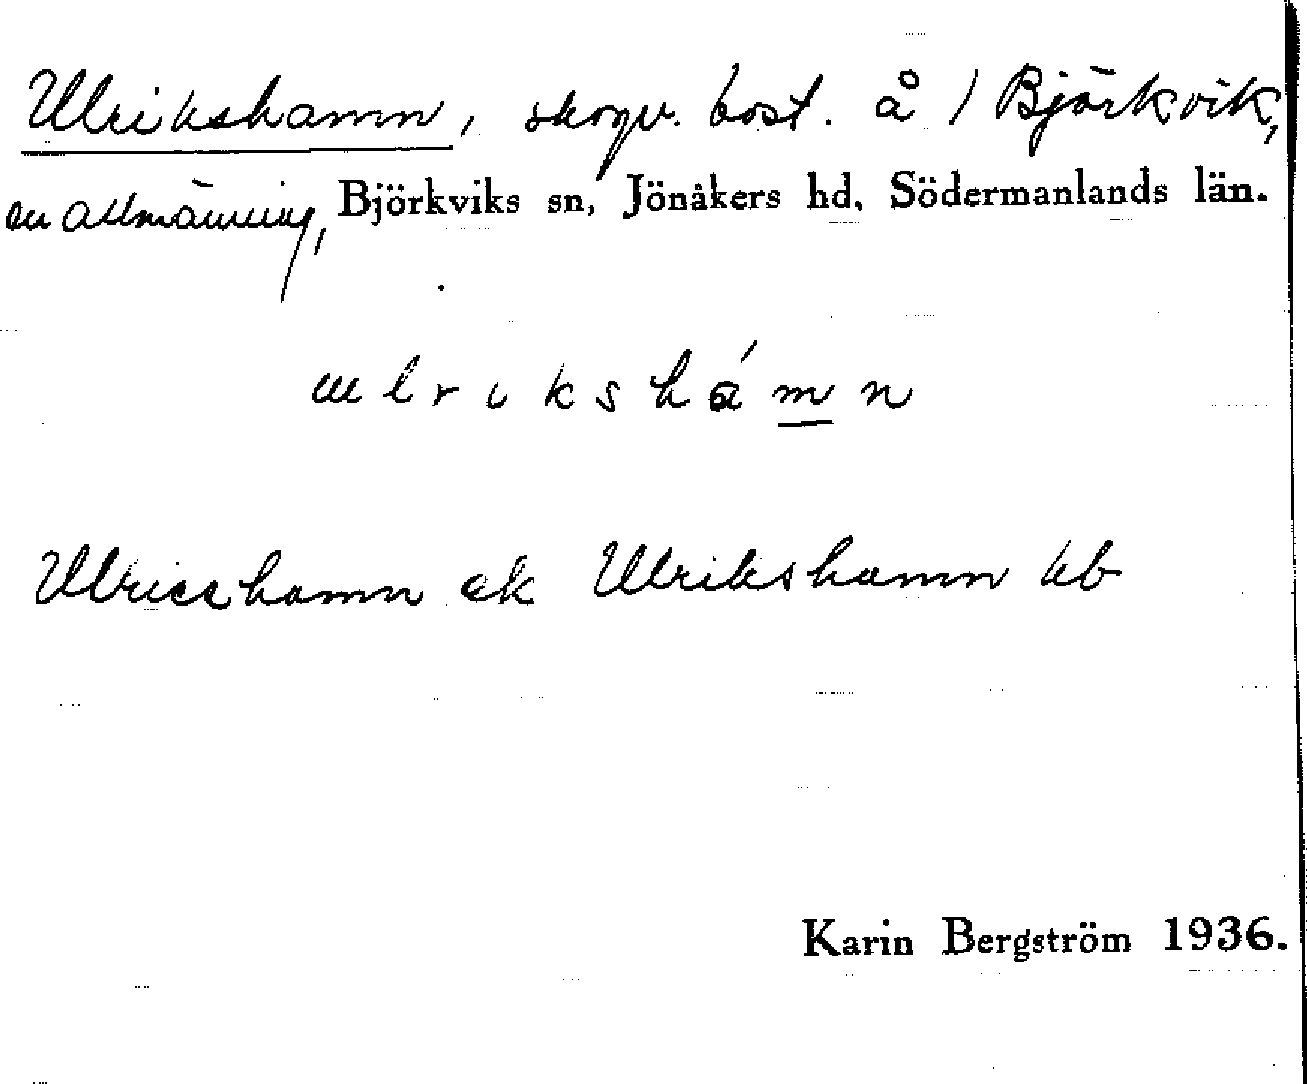 Ulrikshamn, skogv. bost. å / Björkvik,
en allmänning, Björkviks sn, Jönåkers hd, Södermanlands län.
u l r i k s h á m n
Ulricehamn ek Ulrikshamn kb
Karin Bergström 1936.